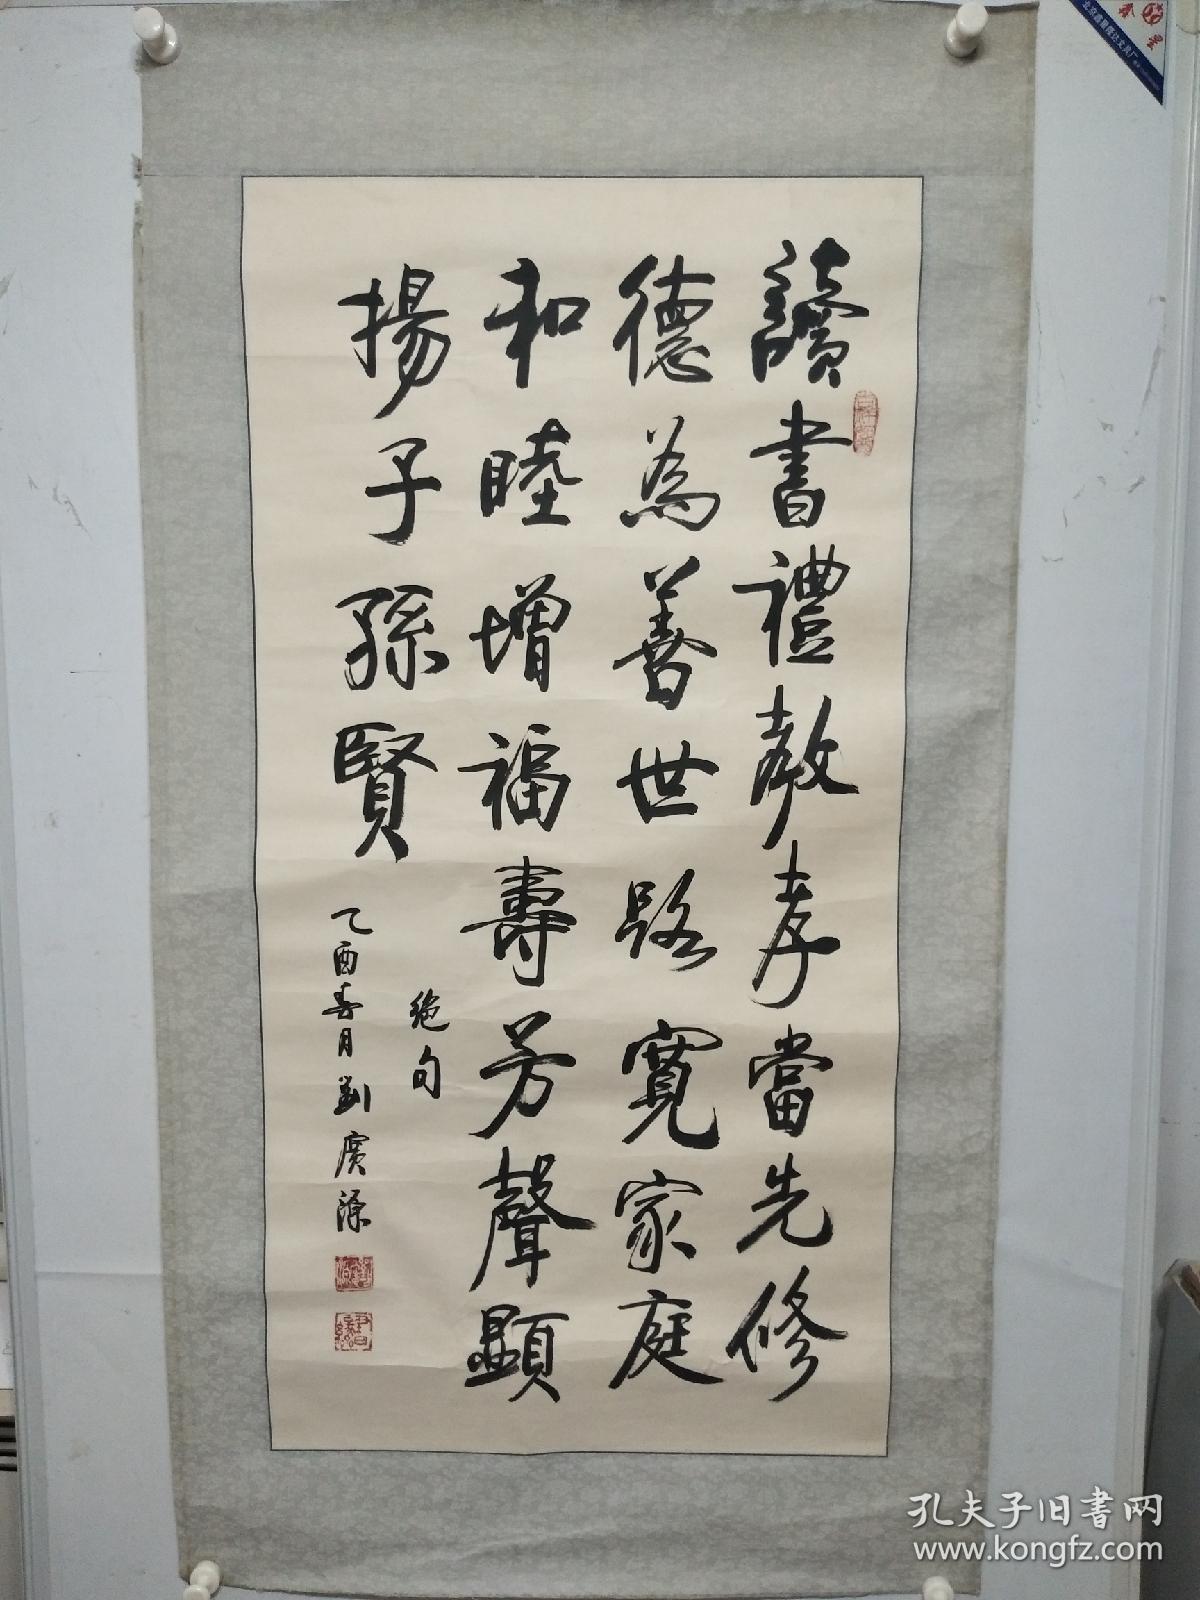 讀書禮教孝當先修
德為善世路寬家庭
和睦增福壽芳聲顯
揚子孫賢
絕句
乙酉春月劉廣滌
孔夫子旧书网
www.kongfz.com